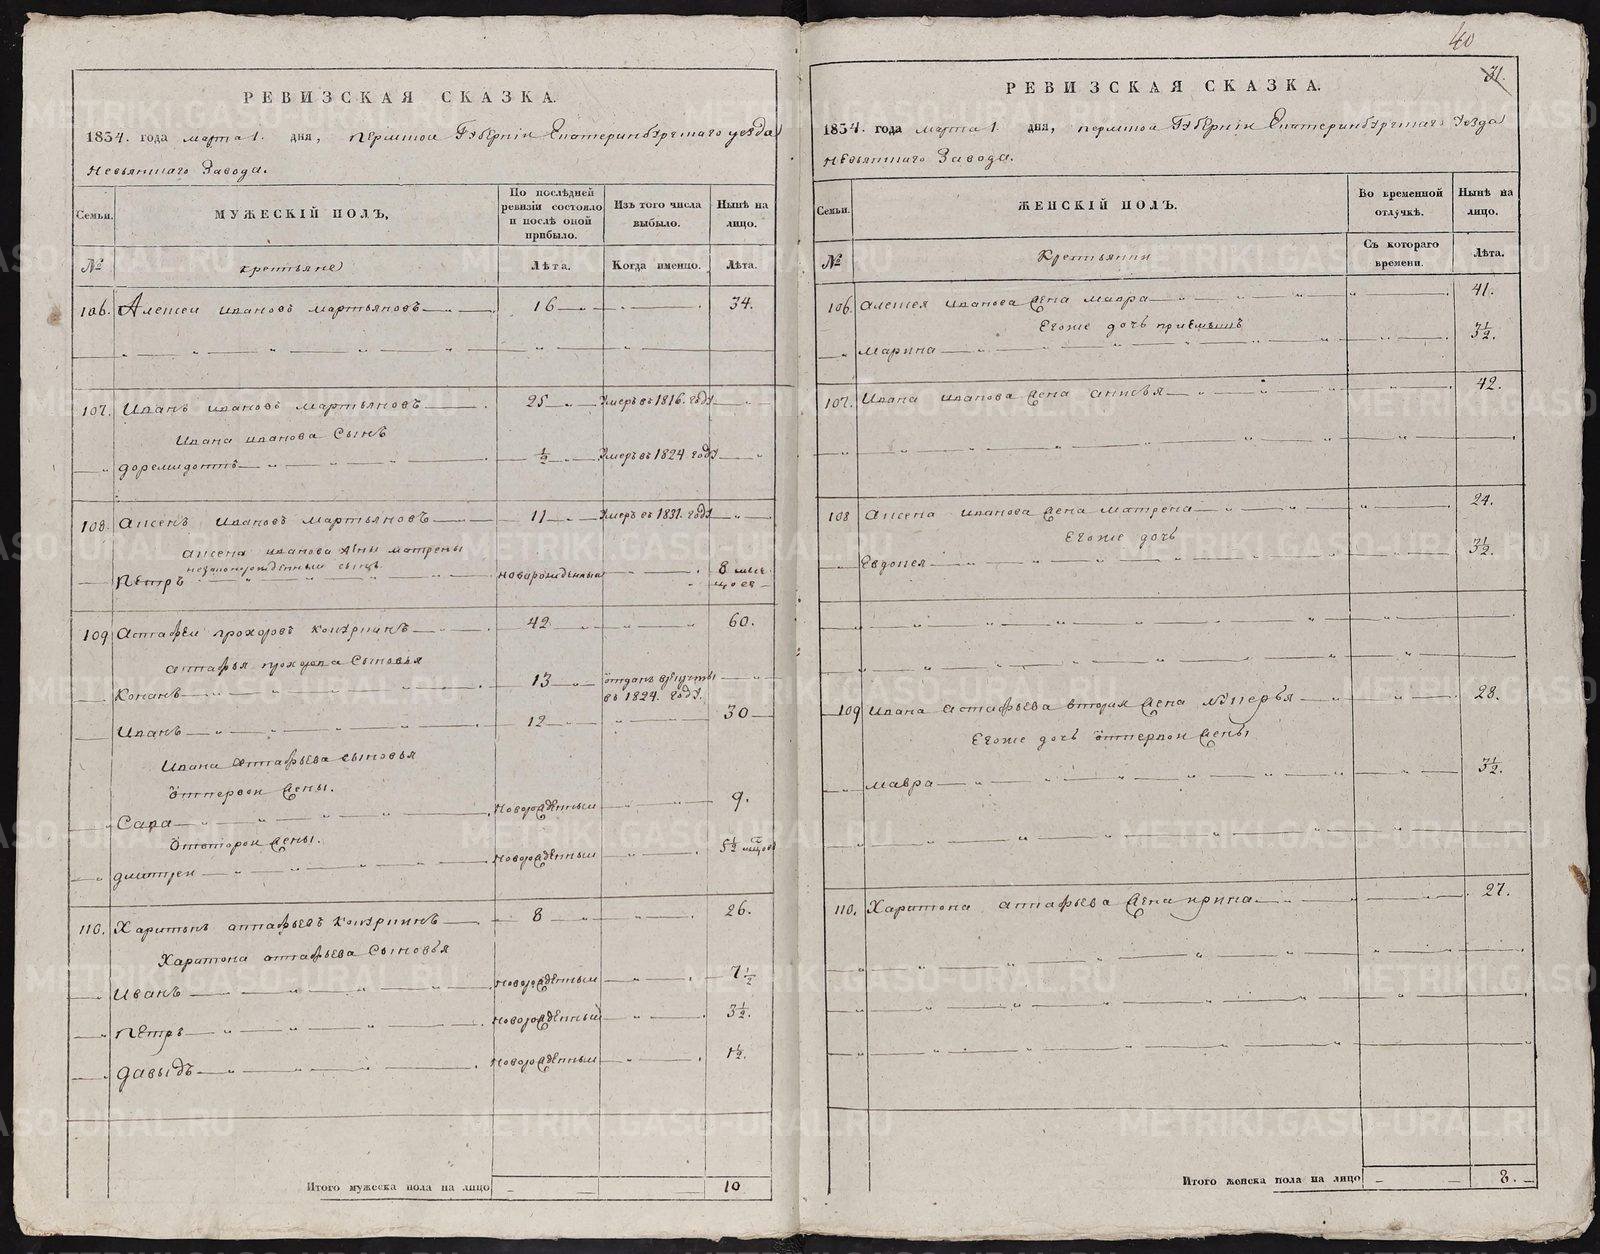 40
РЕВИЗСКАЯ СКАЗКА.
1834. года марта 1. дня, пермской Губерніи Екатеринбургскаго уезда
Невьянскаго Завода.
Семьи.
МУЖЕСКІЙ ПОЛЪ,
По послѣдней ревизіи состояло и послѣ оной прибыло.
Изъ того числа выбыло.
Нынѣ на лицо.
№
крестьяне
Лѣта.
Когда именно.
Лѣта.
106. Алексеи Ивановъ мартьяновъ 16 34.
107. Иванъ ивановъ мартьяновъ 25 Умеръ въ 1816. году
Ивана иванова Сынъ
доремидонтъ ½ Умеръ въ 1824. году
108. Аксенъ Ивановъ мартьяновъ 11 Умеръ въ 1831. году
аксена иванова жены матрены
незаконорожденный сынъ
Петръ новорожденный 8 месецовъ
109 Астафеи прохоровъ 42 60.
астафья прохорова Сыновья
Конанъ 13 отданъ врекруты въ 1824. году.
Иванъ 12 30
Ивана Астафьева сыновья
отпервои жены.
Сава Новорожденныи 9.
отвторои жены.
дмитреи Новорожденныи 5½
110. Харитонъ астафьевъ 8 26.
Харитона астафьева Сыновья
Иванъ новорожденныи 7½
петръ новорожденныи 3½.
давыдъ новорожденныи 1½.
Итого мужеска пола на лицо 10
31.
РЕВИЗСКАЯ СКАЗКА.
1834. года марта 1. дня, пермской Губерніи Екатеринбургскаго Уезда
Невьянскаго Завода.
Семьи.
ЖЕНСКІЙ ПОЛЪ.
Во временной отлучкѣ.
Нынѣ на лицо.
№
Крестьянки
Съ котораго времени.
Лѣта.
106. Алексея Иванова жена мавра 41.
Егоже дочь приемышъ
марина 3½.
107. Ивана Иванова жена анисья 42.
108 Аксена Иванова жена матрена 24.
Егоже дочь
Евдокея 3½.
109 Ивана Астафьева вторая жена лукерья 28.
Егоже дочь отпервои жены
мавра 3½.
110. Харитона астафьева жена ирина 27.
Итого женска пола на лицо 8.
METRIKI.GASO-URAL.RU